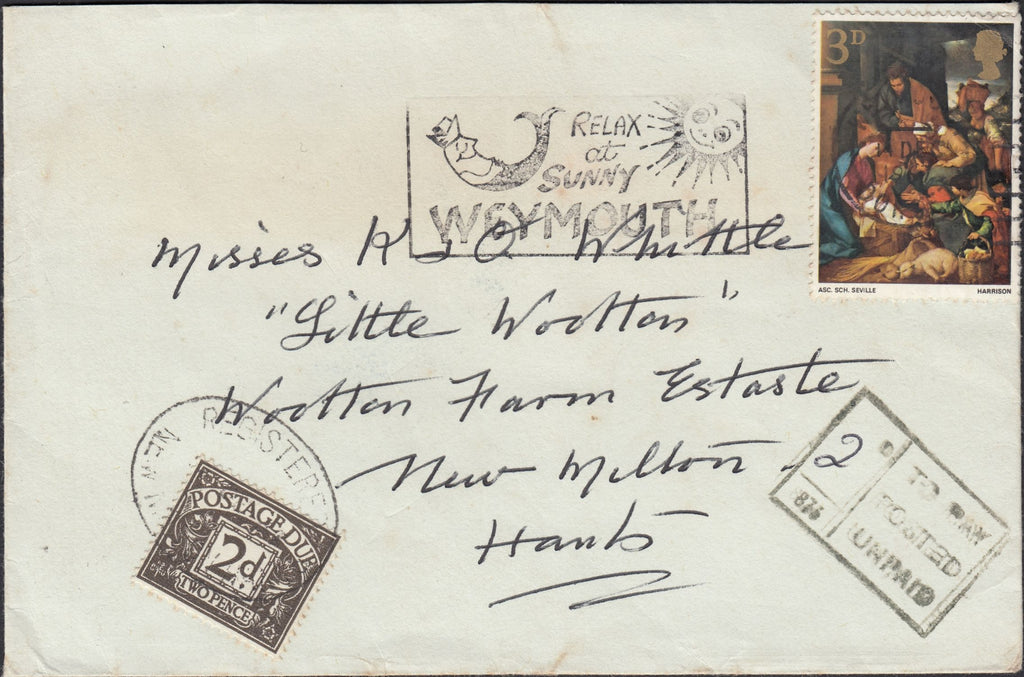 3D
RELAX
at
SUNNY
WEYMOUTH
ASC. SCH. SEVILLE HARRISON
Misses K & O Whittle
"Little Wootton"
Wootton Farm Estaste
New Milton
Hants
REGISTERED
NEW MILTON
POSTAGE DUE
2d
TWO PENCE
2 D
876
TO PAY
POSTED
UNPAID